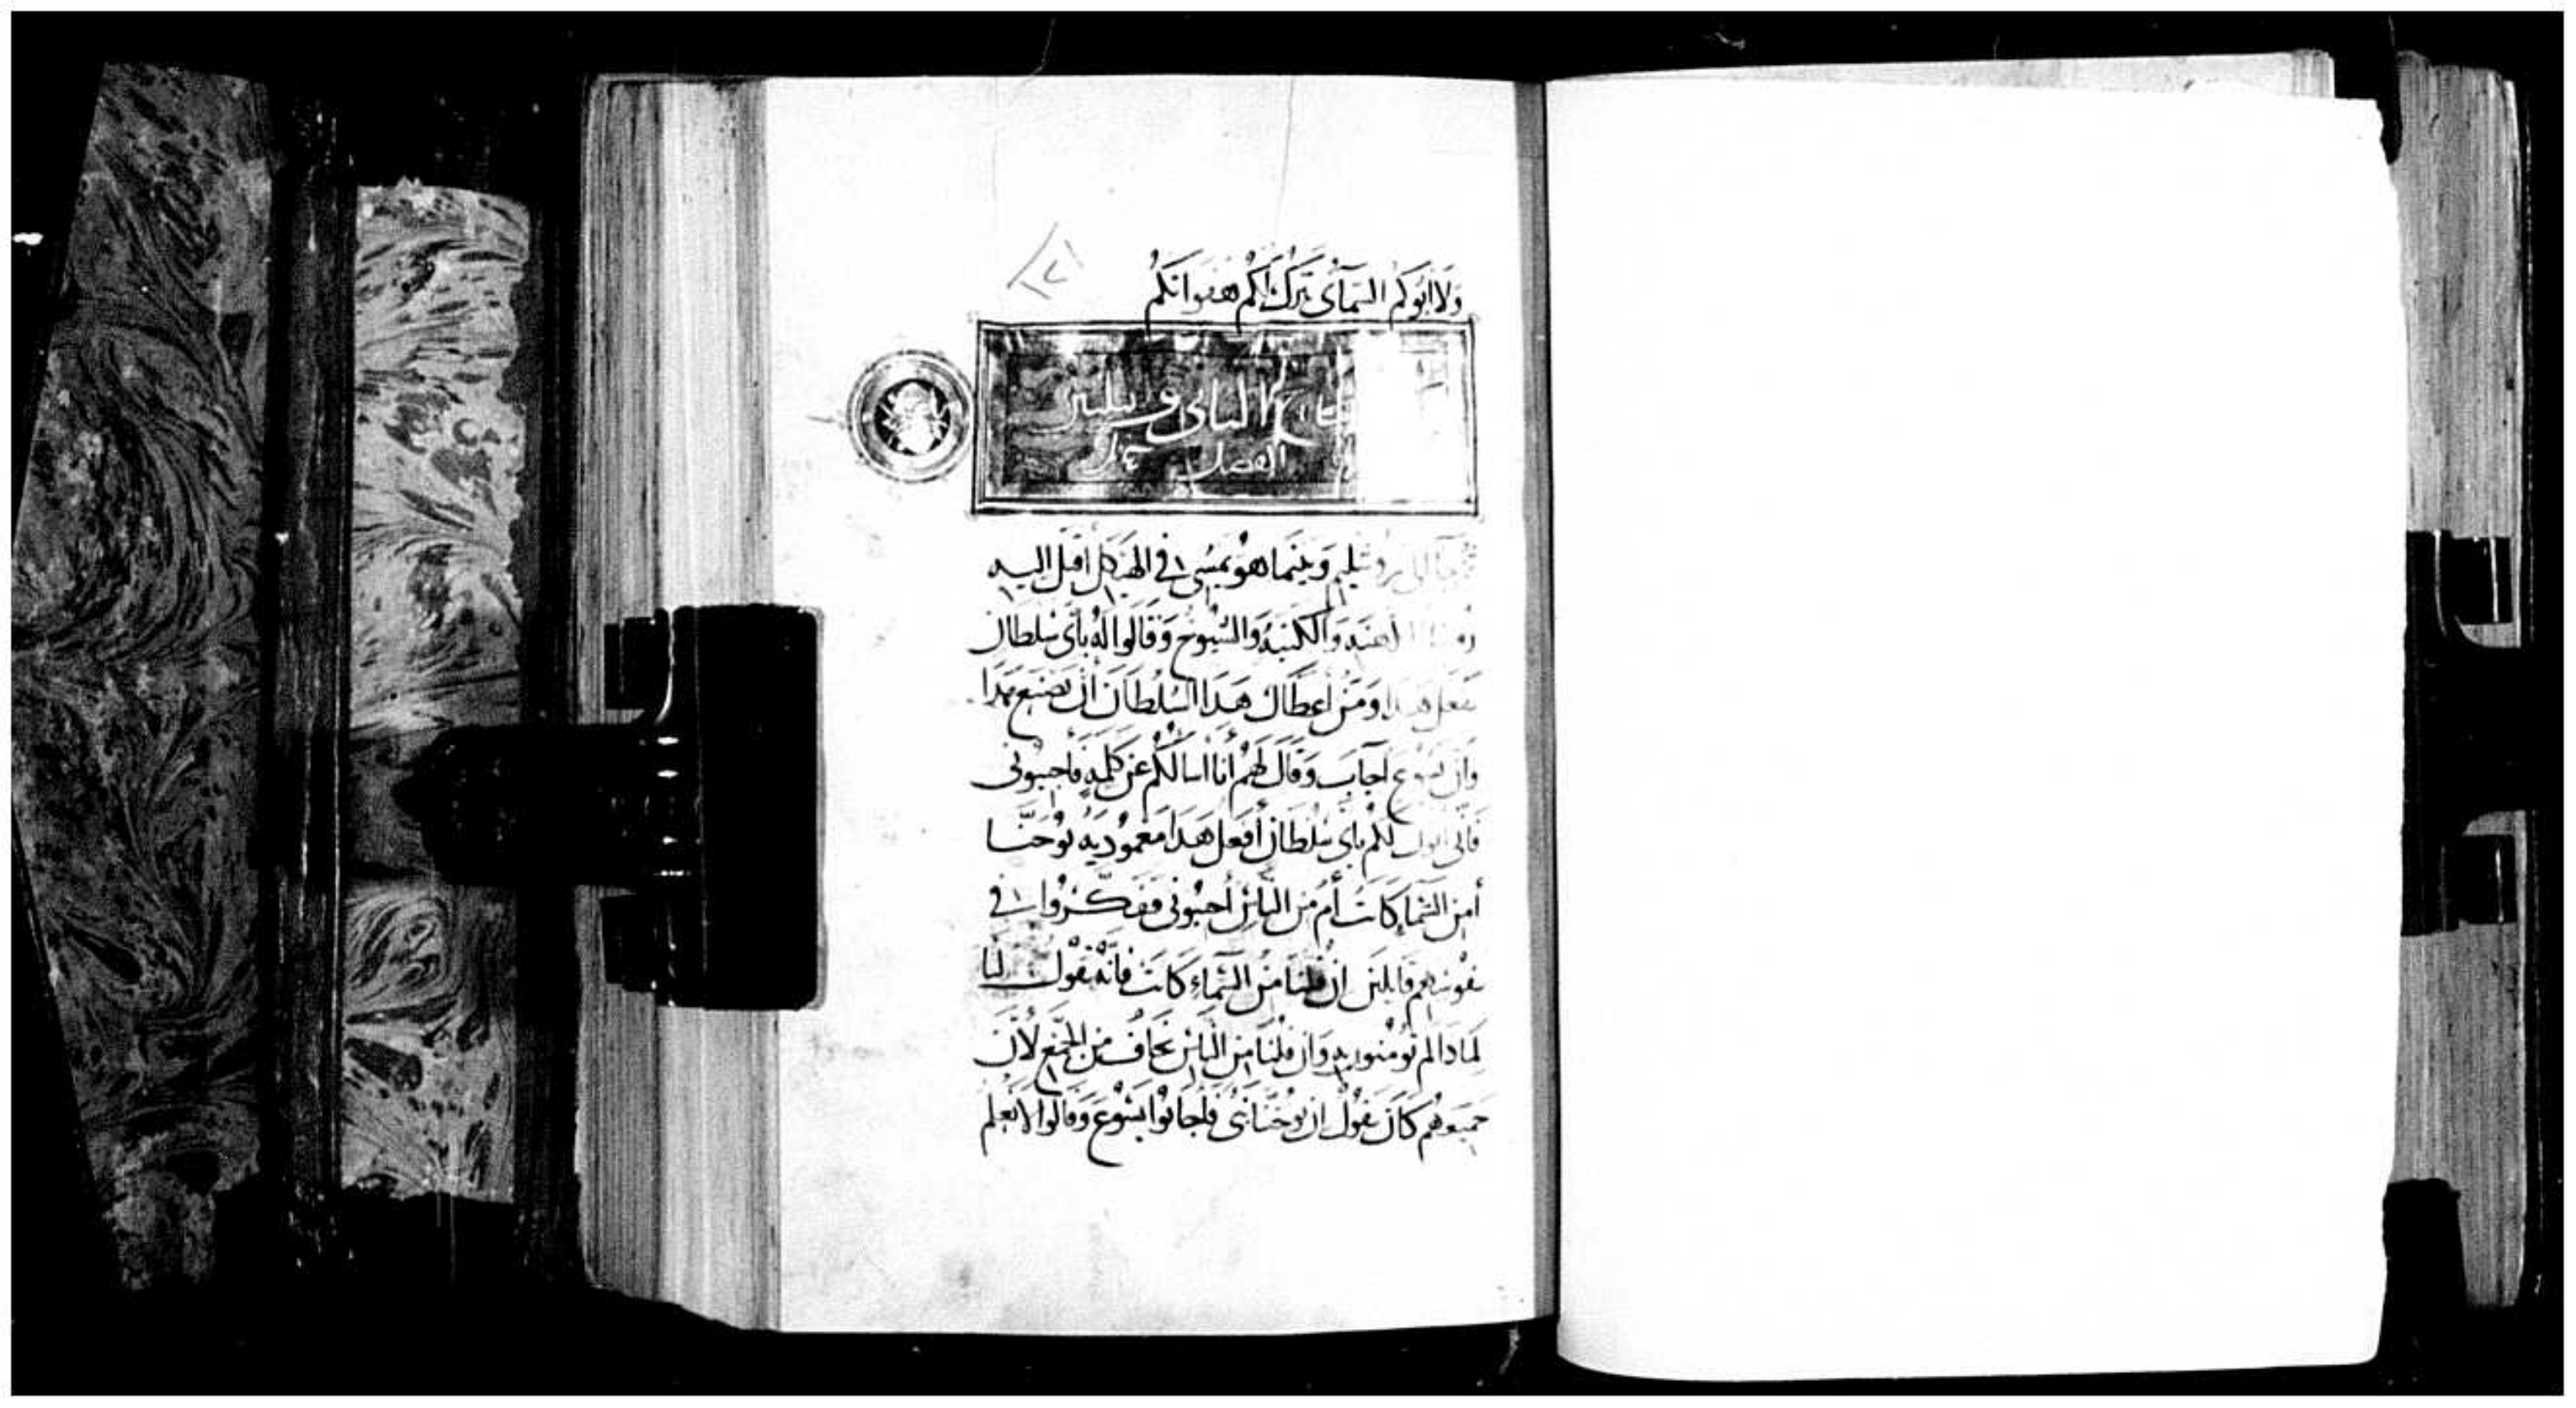 وَلَا ابُوكُم السَّمَآىُ يَترُكُ لَكُم هَفَواتكُم
الثانى و ثلثين
الفصل
وَبَينَمَا هُوَ يَمشِى فى الهَيكَل أقبَلَ اليه
والكَتَبَة وَالشيُوخ وَقَالوا لَهُ بأىّ سُلطان
تفعَل هدا وَمَن أعطَاك هَدَا السُلطَان أن تصنَع هَدَا
وان يسوع اجَابَ وَقَالَ لَهُم أنا اسالكُم عَن كَلِمَةٍ فأجيبُونى
فَانّى اقول لكُم باىِّ سُلطَانٍ أفعَل هَدَا مَعمُودِيَه يُوحَنَّا
أمِن السَّمَاءِ كَانَت أم مِنَ النَّاسِ أجيبُونى ففَكَّرُوا فى
نفُوسهم قايلين ان قلنَا مِنَ السَّمَاءِ كَانَت فانَّهُ يَقول لنا
لمَادَا لم تُومنُوا بِهِ وَان قُلنَا مِنَ النَّاسِ نَخَافُ مِنَ الجَمع لأَنَّ
جَمِيعهُم كَانَ يَقُولُ ان يُوحَنَّا نَبِىّ فأجَابُوا يَسُوع وَقَالوا لا نعلَم